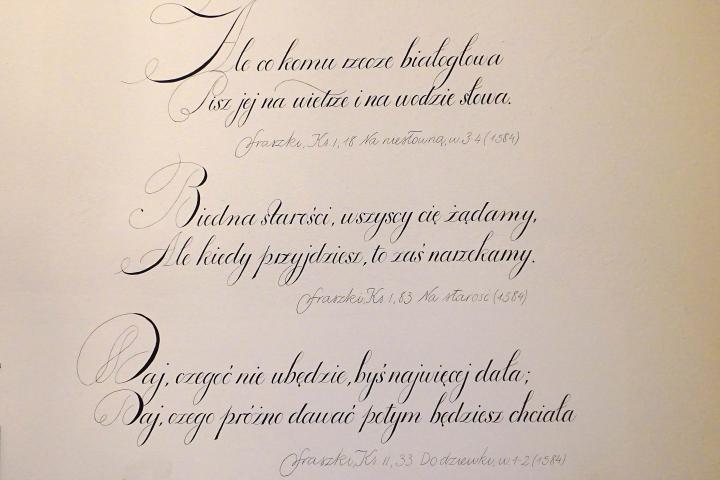 Ale co komu rzecze białogłowa
Pisz jej na wietrze i na wodzie słowa.
Fraszki, Ks. I, 18 Na niesłowną, w. 3-4 (1584)
Biedna starości, wszyscy cię żądamy,
Ale kiedy przyjdziesz, to zaś narzekamy.
Fraszki, Ks. I, 83 Na starość (1584)
Daj, czegoć nie ubędzie, byś najwięcej dała;
Daj, czego próżno dawać potym będziesz chciała
Fraszki, Ks II, 33 Do dziewki, w. 1-2 (1584)